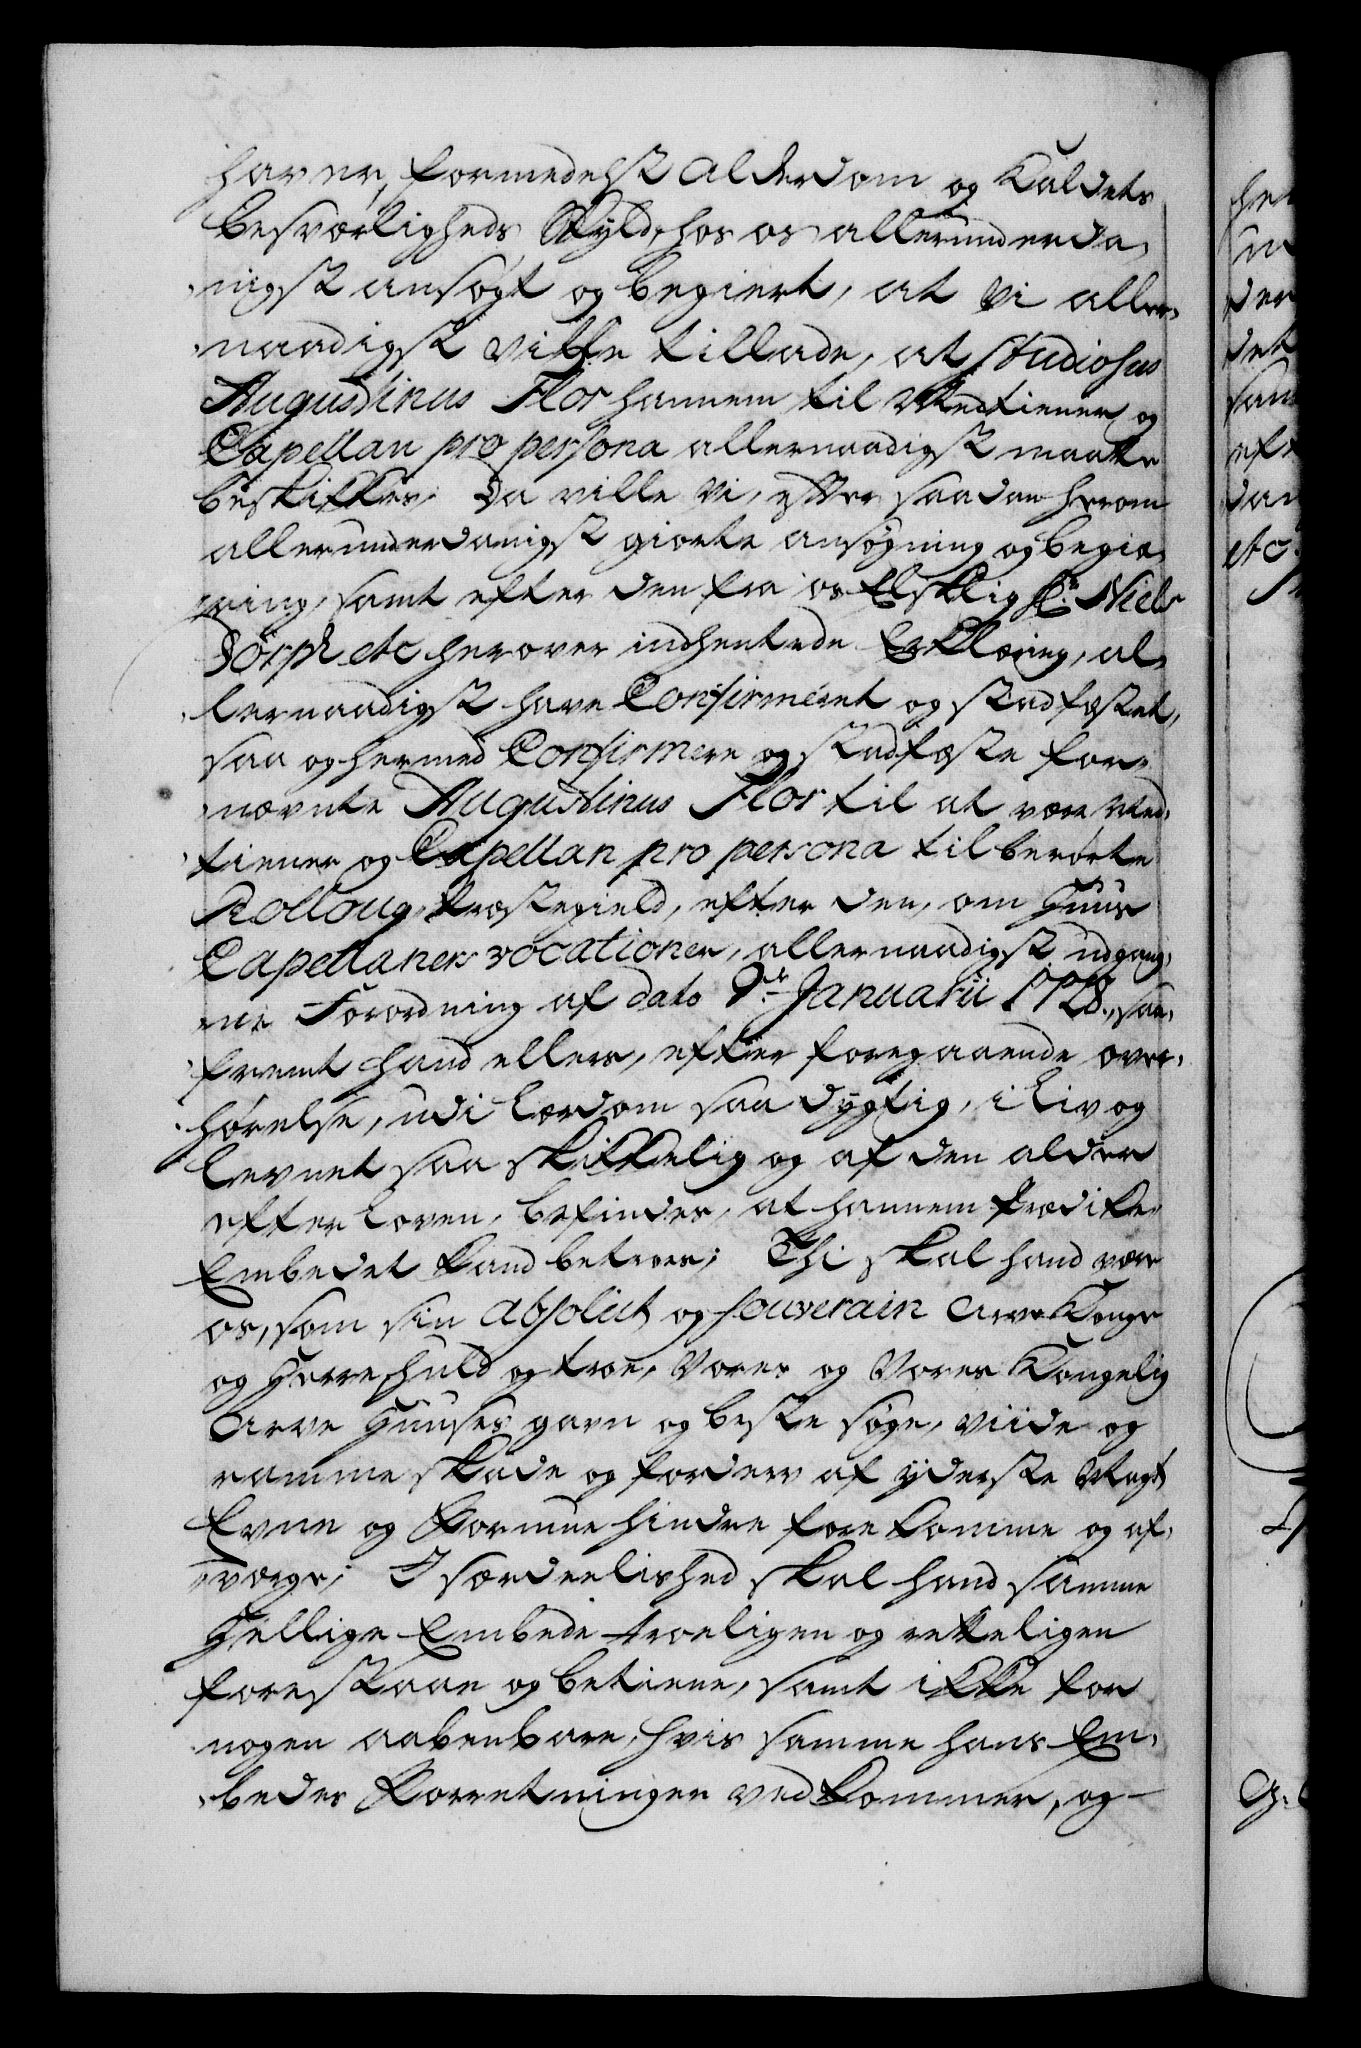 haver, formedelst Alderdom og Kaldets
besværligheds Skyld, hos os allerunderda-
nigst ansøgt og begiert, at Vi aller-
naadigst ville tillade, at Studiosus
Augustinus Flor hannem til Medtiener og
Capellan pro persona allernaadigst maatte
beskikkes; Da ville Vi, efter saadan herom
allerunderdanigst giorte ansøgning og begiæ-
ring, samt efter den fra os Elskelig Hr. Niels
Dorph etc herover indhentede Erklæring, al-
lernaadigst have Confirmeret og stadfæstet,
saa og hermed Confirmere og stadfæste for-
nævnte Augustinus Flor til at være Med-
tiener og Capellan pro persona til berørte
Rolloug Præstegield, efter den, om Huus
Capellaners vocationer, allernaadigst udgang-
ne Forordning af dato 9de Januarii 1728., saa-
fremt hand ellers, efter foregaaende over-
hørelse, udi Lærdom saa dygtig, i Liv og
Levnet saa skikkelig og af den alder
efter Loven, befindes, at hannem Prædike-
Embedet kand betroes; Thi skal hand være
os, som sin absolut og souverain Arve Konge
og Herre, huld og troe, Vores og Vores Kongelig
Arve Huuses gavn og beste søge, viide og
ramme skade og forderv af yderste Magt
Evne og Formue hindre forekomme og af-
værge; I særdeelished skal hand samme
Hellige Embede troeligen og retteligen
forestaae og betiene, samt ikke for
nogen aabenbare, hvis samme hans Em-
bedes Forretninger vedkommer, og